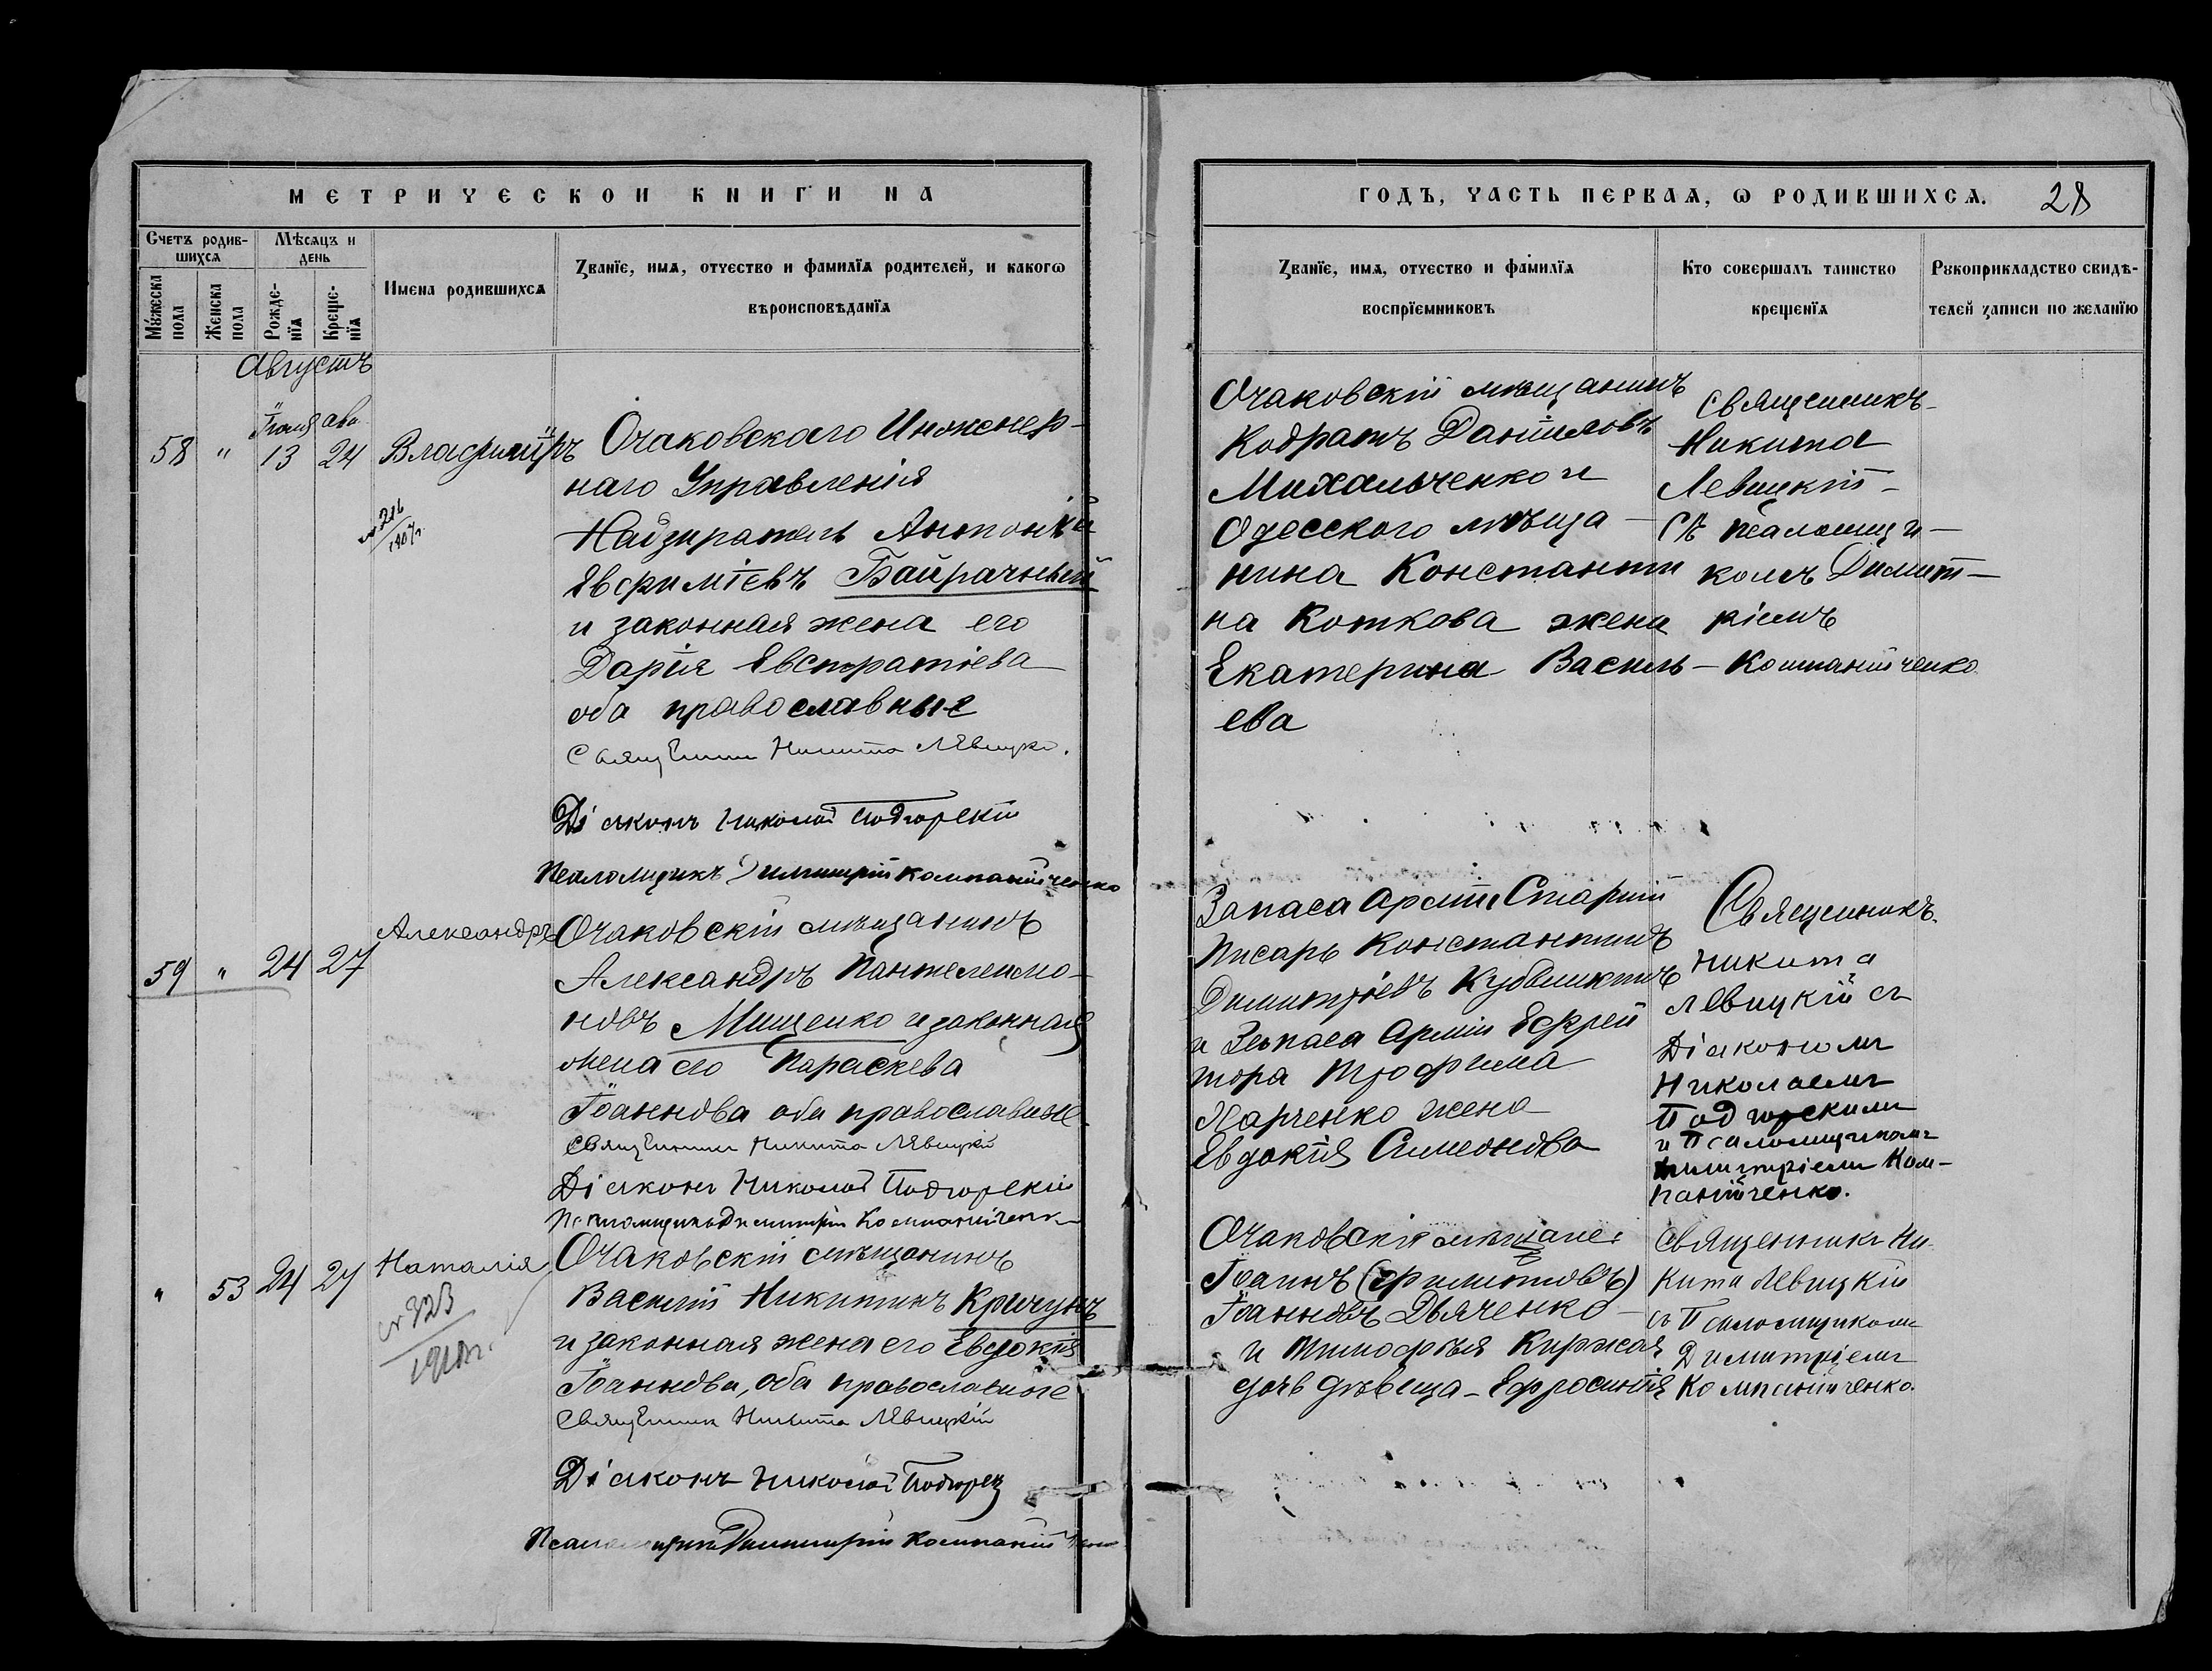 МЕТРИЧЕСКОЙ КНИГИ НА
Счетъ родив-
шихся
Мѣсяцъ и
день
Мужеска
пола
Женска
пола
Рожде-
нія
Креще-
нія
Имена родившихся
Званіе, имя, отчество и фамилія родителей, и какого
вѣроисповѣданія
Августъ
Іюля авг.
58 " 13 24 Владиміръ
№ 216
1907г.
Очаковскаго Инженер-
наго Управленія
Надзиратель Антоній
Евфиміевъ Байрачный
и законная жена его
Дарія Евстратіева
оба православные
Священникъ Никита Левицкій.
Діаконъ Николай Подгорскій
Псаломщикъ Димитрій Компанійченко
59 " 24 27
Александръ
Очаковскій мѣщанинъ
Александръ Пантелеимо-
новъ Мищенко и законная
жена его Параскева
Іоаннова оба православные
Священникъ Никита Левицкій
Діаконъ Николай Подгорскій
Псаломщикъ Димитрій Компанійченко
" 53 24 27 Наталія
№ 323
Очаковскій мѣщанинъ
Василій Никитинъ Кричунъ
и законная жена его Евдокія
Іоаннова, оба православные
Священникъ Никита Левицкій
Діаконъ Николай Подгорск
Псаломщикъ Димитрій Компанійченко
ГОДЪ, ЧАСТЬ ПЕРВАЯ, Ѡ РОДИВШИХСЯ. 28
Званіе, имя, отчество и фамилія
воспріемниковъ
Кто совершалъ таинство
крещенія
Рукоприкладство свидѣ-
телей записи по желанію
Очаковскій мѣщанинъ
Кодратъ Даніиловъ
Михальченко и
Одесского мѣща-
нина Константи
на Коткова жена
Екатерина Василь-
ева
Священникъ
Никита
Левицкій
съ псаломщи-
комъ Димит-
ріемъ
Компанійченко
Запаса Арміи Старшій
Писарь Константинъ
Димитріевъ
и Запаса Арміи Ефрей
тора Трофима
Харченко жена
Евдокія Симеонова
Священникъ
Никита
Левицкій съ
Діакономъ
Николаемъ
Подгорскимъ
и Псаломщикомъ
Димитріемъ Ком-
панійченко.
Очаковскіе мѣщане:
Іоаннъ (Филиповъ)
Іоанновъ Дьяченко
и Тимофея Киржая
дочь дѣвица - Ефросинія
Священникъ Ни-
кита Левицкій
съ Псаломщикомъ
Димитріемъ
Компанійченко.